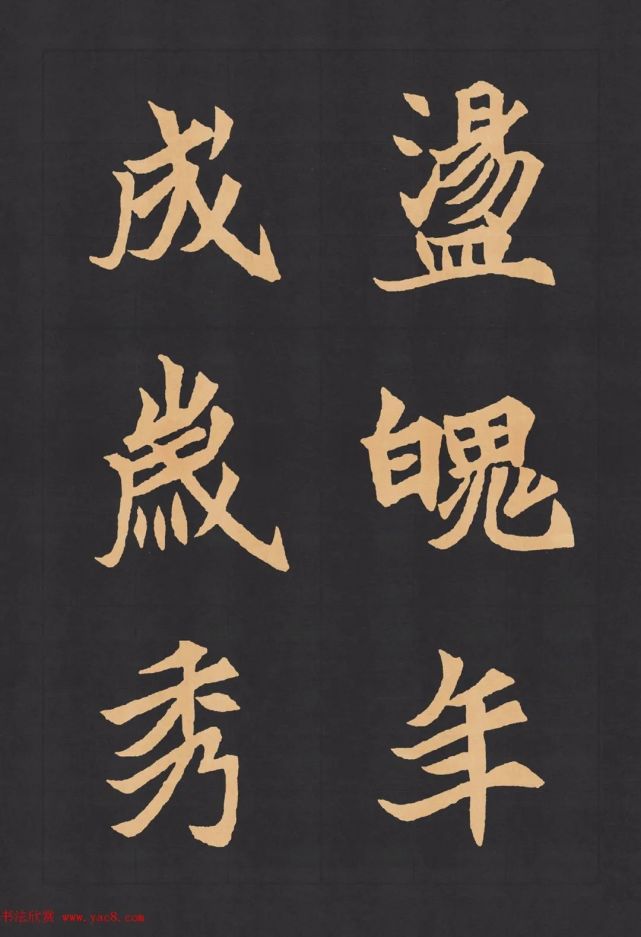 盪魄年
成歲秀
书法欣赏 www.yac8.com